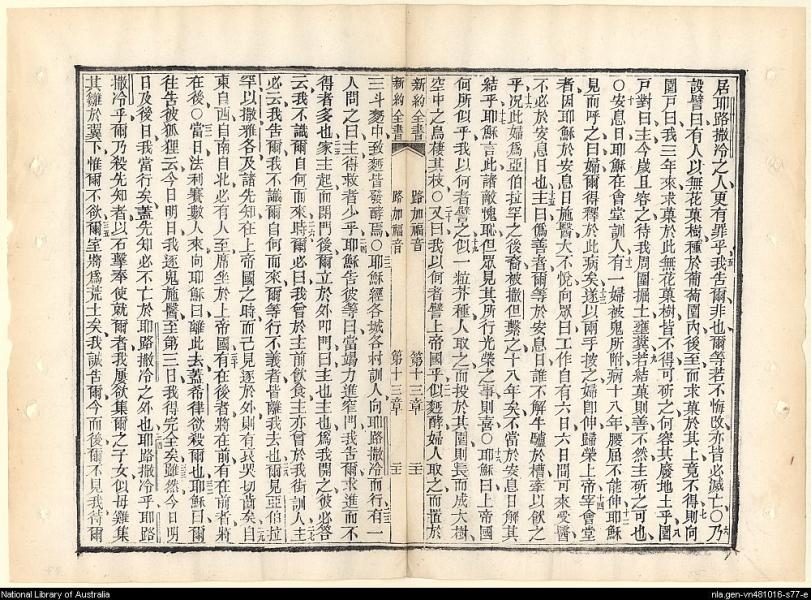 居耶路撒冷之人更有罪乎我告爾非也爾等若不悔改亦皆必滅亡○乃
設譬曰有人以無花菓樹種於葡萄園內後至而求菓於其上竟不得則向
園戶曰我三年來求菓於此無花菓樹皆不得可斫之何容其廢地土乎園
戶對曰主今歲且容之待我周圍掘土壅糞若結菓則善不然主斫之可也
○安息日耶穌在會堂訓人有一婦被鬼所附病十八年腰屈不能伸耶穌
見而呼之曰婦爾得釋於此病矣遂以兩手按之婦卽伸歸榮上帝宰會堂
者因耶穌於安息日施醫大不悅向眾曰工作自有六日六日間可來受醫
不必於安息日也主曰僞善者爾等於安息日誰不解牛驢於槽牽以飲之
乎況此婦爲亞伯拉罕之後裔被撒但繫之十八年矣不當於安息日解其
結乎耶穌言此諸敵愧恥但眾見其所行光榮之事則喜○耶穌曰上帝國
何所似乎我以何者譬之似一粒芥種人取之而投於其園則長而成大樹
空中之鳥棲其枝○又曰我以何者譬上帝國乎似麪酵婦人取之而置於
新約全書 路加福音 第十三章 二十
新約全書 路加福音 第十三章 二十
三斗麪中致麪皆發酵焉○耶穌經各城各村訓人向耶路撒冷而行有一
人問之曰主得救者少乎耶穌告彼等曰當竭力進窄門我告爾求進而不
得者多也家主起而閉門後爾立於外叩門曰主也主也爲我開之彼必答
云我不識爾自何而來時爾必曰我曾於主前飲食主亦曾於我街訓人主
必云我告爾我不識爾自何而來爾等行不義者皆離我去也爾見亞伯拉
罕以撒雅各及諸先知在上帝國之時而己見逐於外則有哀哭切齒矣自
東自西自南自北必有人至席坐於上帝國有在後者將在前有在前者將
在後○當日法利賽數人來向耶穌曰離此去蓋希律欲殺爾也耶穌曰爾
往告彼狐狸云今日明日我逐鬼施醫至第三日我得完全矣雖然今日明
日及後日我當行矣蓋先知必不亡於耶路撒冷之外也耶路撒冷乎耶路
撒冷乎爾乃殺先知者以石擊奉使就爾者我屢欲集爾之子女似母雞集
其雛於翼下惟爾不欲爾室將爲荒土矣我誠告爾今而後爾不見我待爾
National Library of Australia
nla.gen-vn481016-s77-e